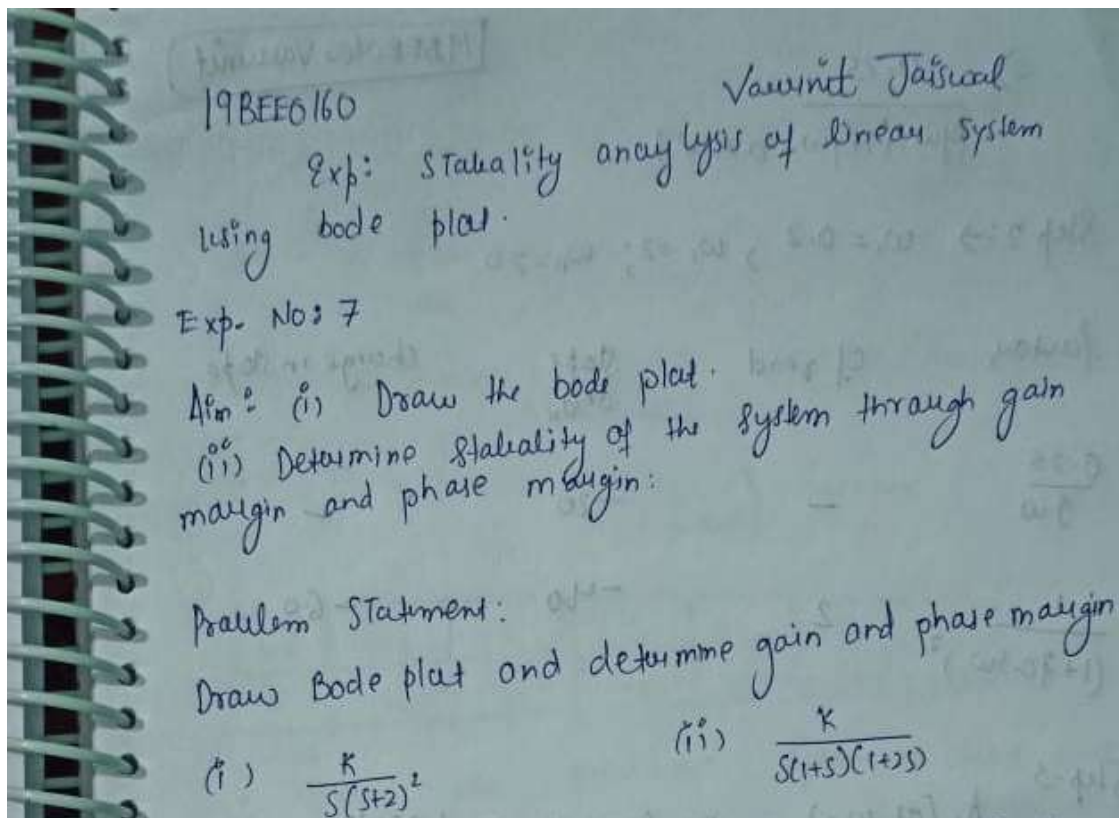 19BEE0160 Vavinit Jaiswal
Exp: Stabality anaylysis of linear system
using bode plot.
Exp. No: 7
Aim: (i) Draw the bode plot.
(ii) Determine stabality of the system through gain
margin and phase margin:
Problem Statement:
Draw Bode plot and determine gain and phase margin
(i) K/S(S+2)² (ii) K/S(1+S)(1+2S)